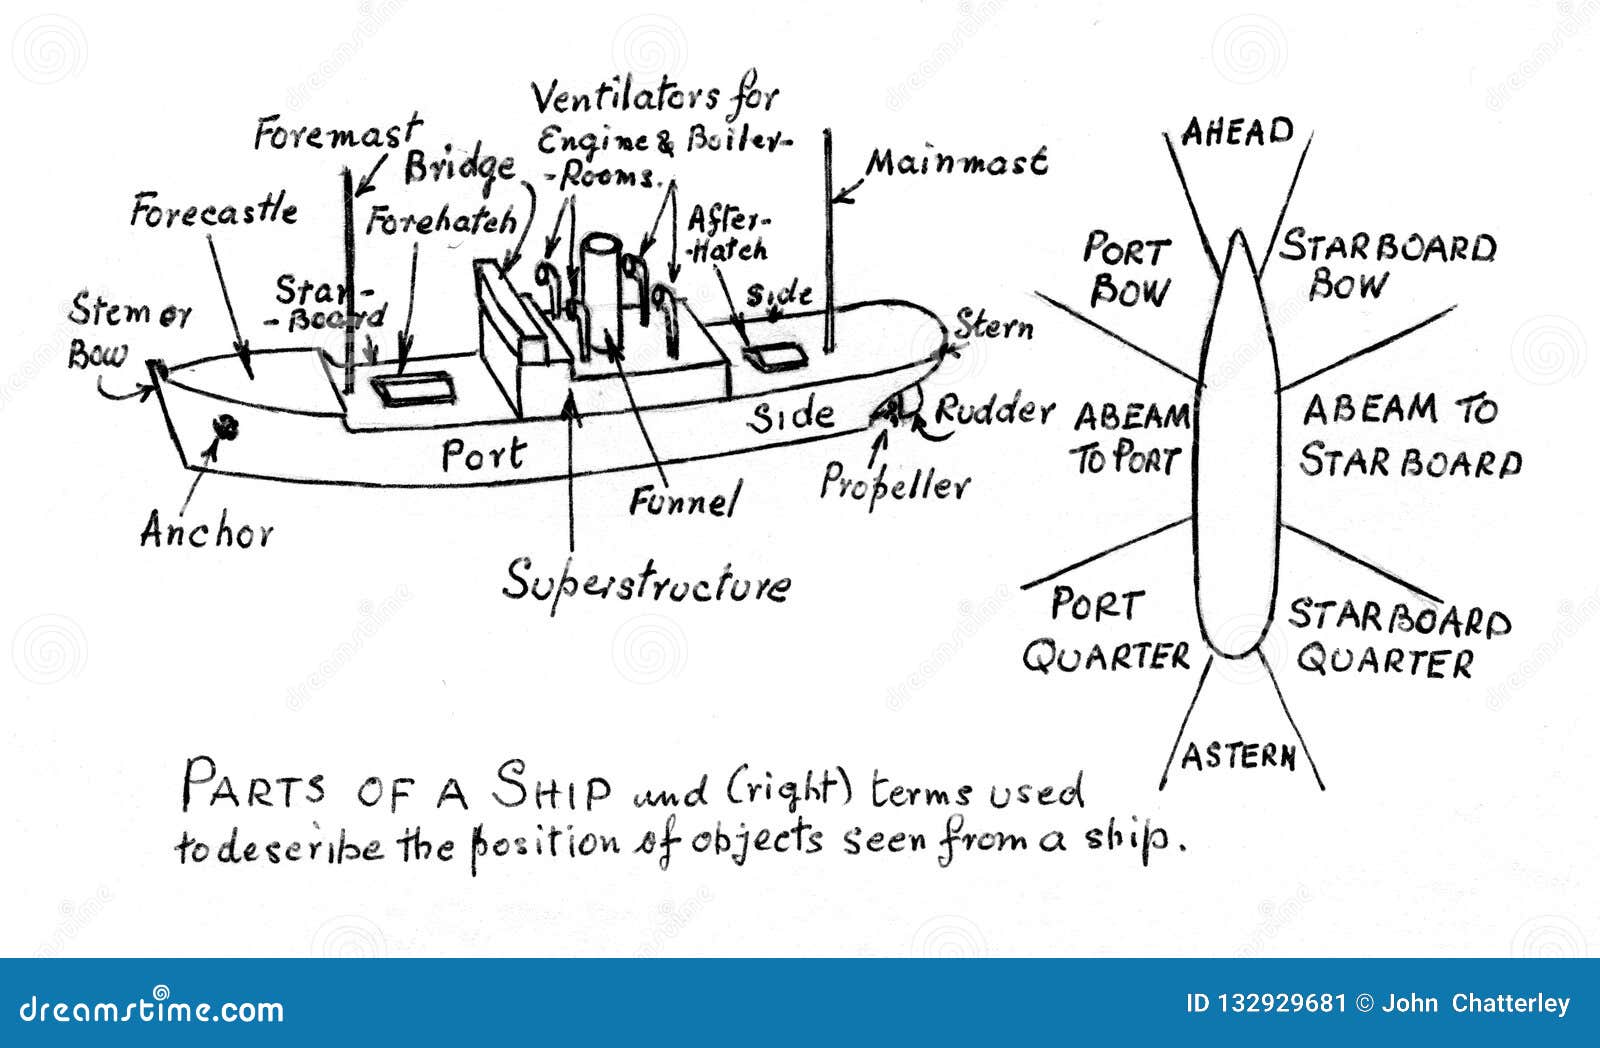 Ventilators for
Engine & Boiler-
-Rooms.
Foremast
Bridge
Mainmast
Forecastle
Forehatch
After-
-Hatch
Star-
-Board
Side
Stem or
Bow
Stern
Port
Side
Rudder
Anchor
Funnel
Propeller
Superstructure
AHEAD
PORT
BOW
STARBOARD
BOW
ABEAM
TO PORT
ABEAM TO
STARBOARD
PORT
QUARTER
STARBOARD
QUARTER
ASTERN
PARTS OF A SHIP and (right) terms used
to describe the position of objects seen from a ship.
dreamstime.com
ID 132929681 © John Chatterley